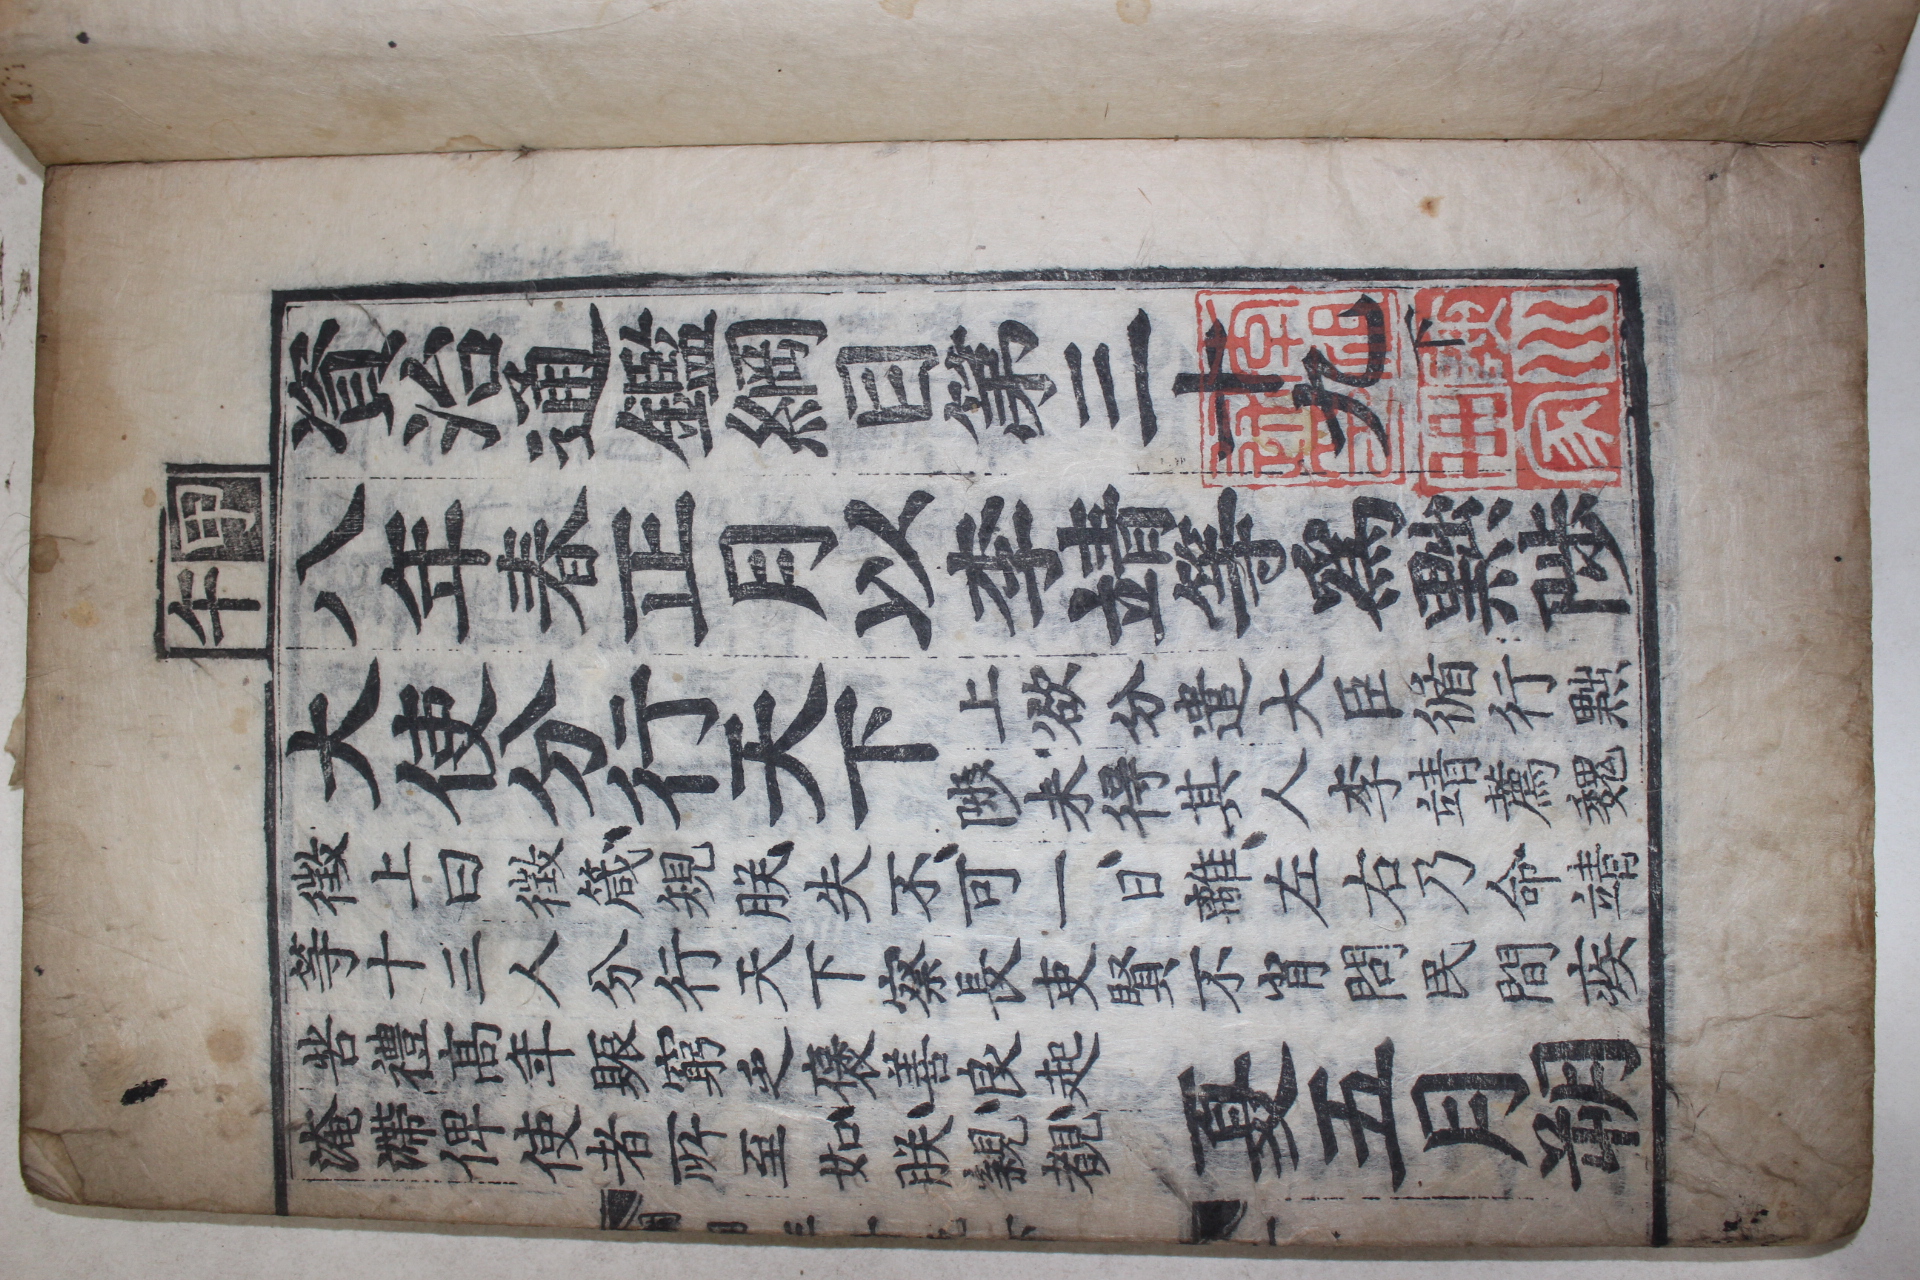 資治通鑑綱目第三十九下
甲午
八年春正月以李靖等爲黜陟
大使分行天下
上欲分遣大臣循行黜
陟未得其人李靖薦魏
徵上曰徵箴規朕失不可一日離左右乃命靖
等十三人分行天下察長吏賢不肯問民間疾
苦禮高年賑窮乏褒善良起
淹滯俾使者所至如朕親覩
夏五月朔